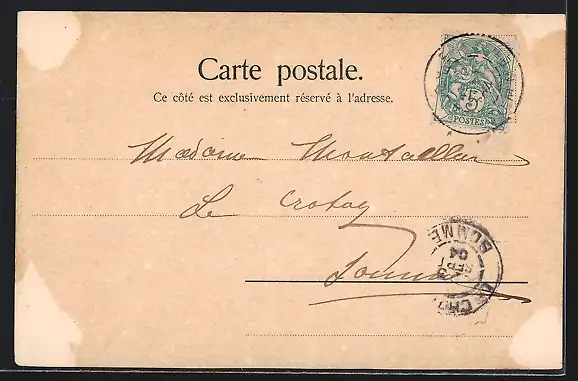 Carte postale.
Ce côté est exclusivement réservé à l'adresse.
5
POSTES
Madame
Le Crotoy
Somme
SOMME
SEPT
04